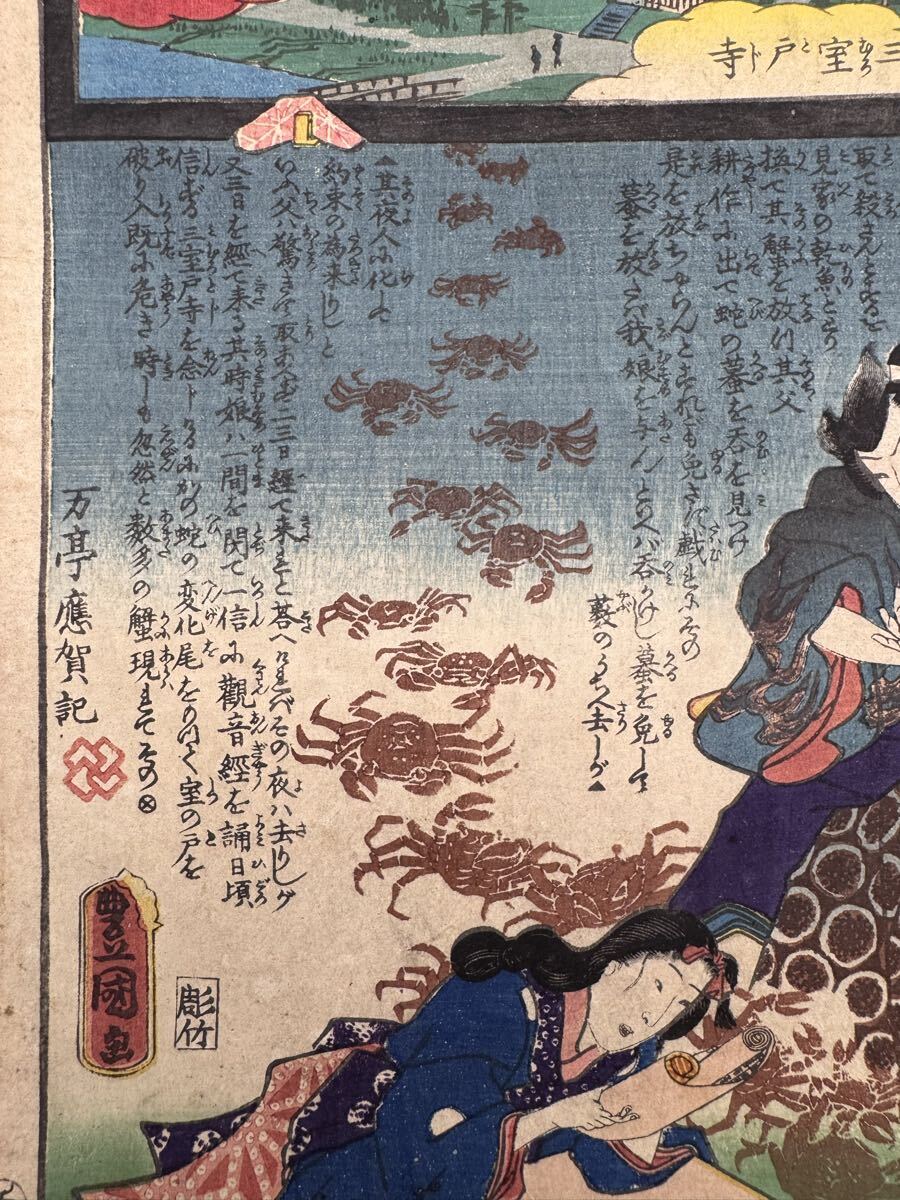 三室戸寺
取て殺さんとする
見家の乾魚と
換て其蟹を放村其父
耕作に出て蛇の蟇を呑を見つけ
是を放ちやらんとすれども免さず戯れにその
蟇を放さば我娘を与んといへば呑かけし蟇を免して
藪のうちへ去しが▲
▲其夜人に化して
約束の為来りしと
いふ父ハ驚きて
二三日経て来れと答へければその夜ハ去りしが
又三日を経て来る其時娘ハ一間を閉て一信に觀音經を誦日頃
信ずる三室戸寺を念じけるにかの蛇の変化尾をもつて室の戸を
破り入既に危き時しも忽然と数多の蟹現れてその⊗
万亭應賀記
豊國画
彫竹